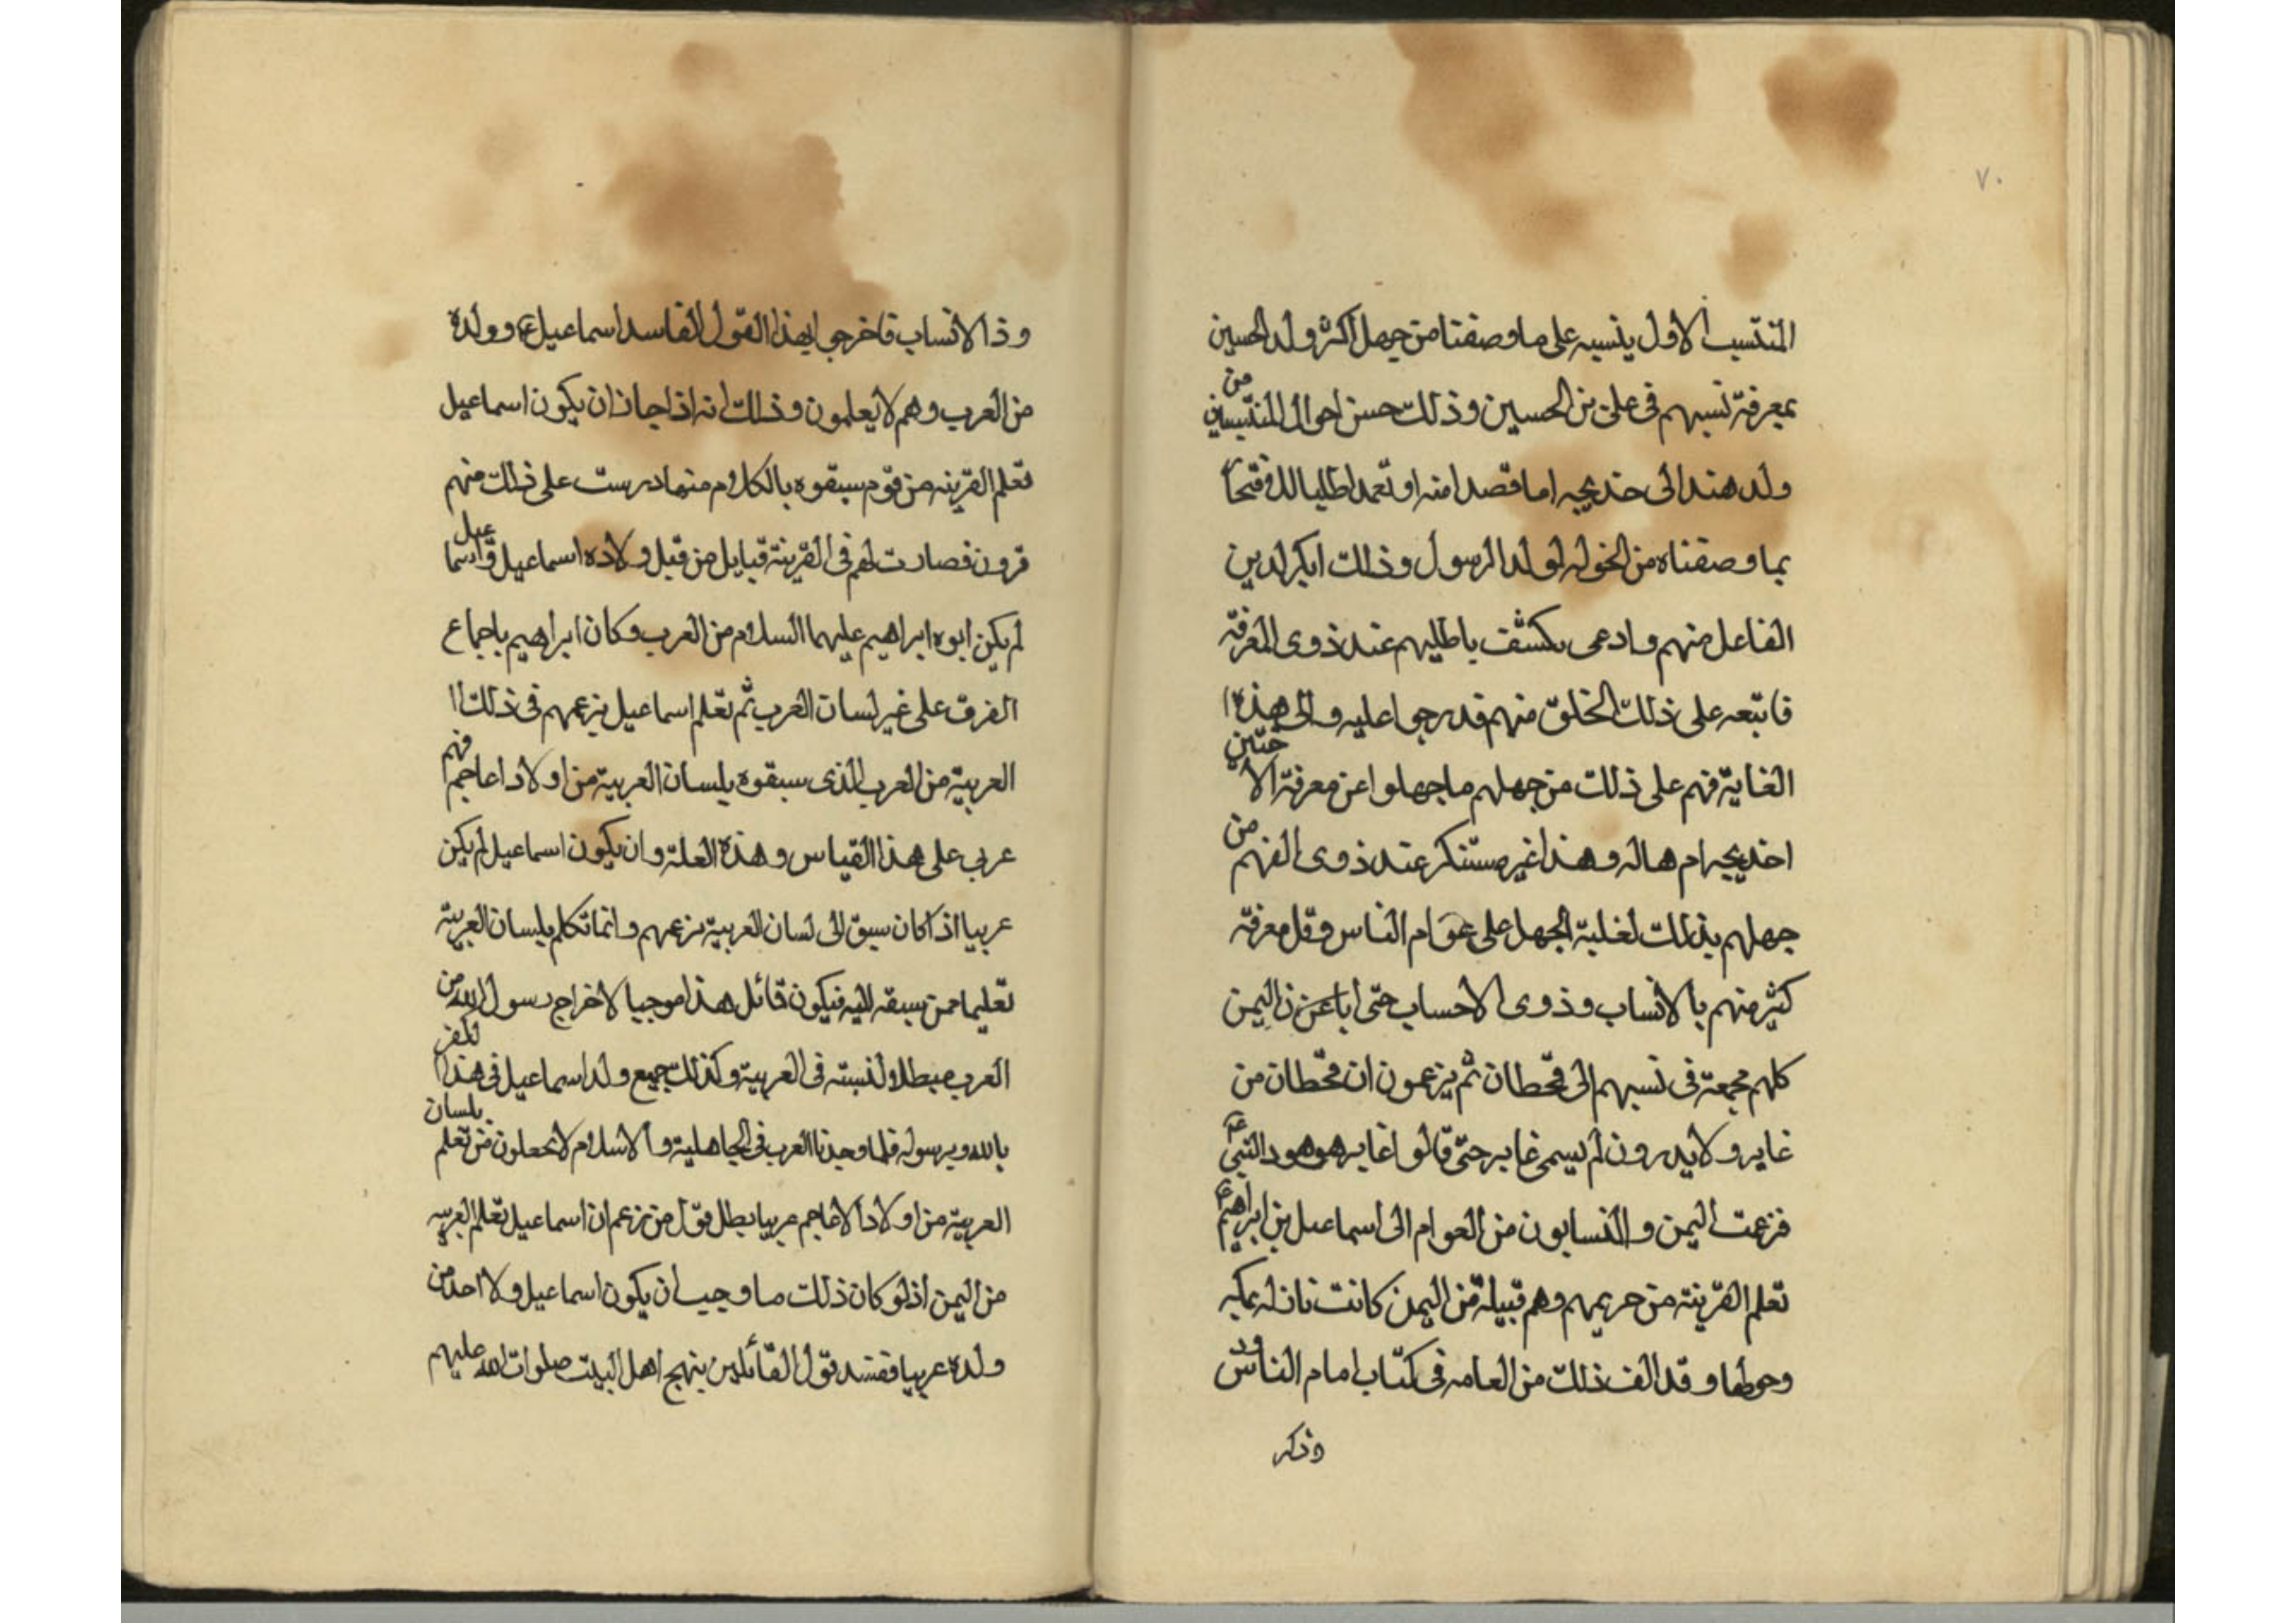 ٧٠
المنتسب الاول ينسبه على ما وصفنا من جهل اكثر ولد الحسين
بمعرفة نسبهم فى على بن الحسين وذلك حسن احوال المنتسبين من
ولد هند الى خديجه اما قصدا منه او تعمدا طلبا
بما وصفناه من الخوله لولد الرسول وذلك
الفاعل منهم وادعى يكشف باطلهم عند ذوى المعرفة
فاتبعه على ذلك الخلق منهم قد رجوا عليه والى هذه ا
الغاية فهم على ذلك من جهلهم ما جهلوا عن معرفة الا ختين
اخديجه ام هاله وهذا غير مستنكر عند ذوى الفهم من
جهلهم بذلك لغلبة الجهل على عوام الناس وقل معرفة
كثير منهم بالانساب وذوى الاحساب حتى اليمن
كلهم مجمعة فى نسبهم الى قحطان ثم يزعمون ان قحطان من
غابر ولا يدرون لم يسمى غابر حتى قالوا غابر هو هود النبى ع
فزعمت اليمن والنسابون من العوام الى اسماعيل بن ابراهيم ع
تعلم القرينة من حريمهم وهم قبيلة من اليمن كانت نازله بمكه
وحولها وقد الف ذلك من العامه فى كتاب امام الناس
وذكر
وذا الانساب فاخرجوا بهذا القول الفاسد اسماعيل ع وولده
من العرب وهم لا يعلمون وذلك انه اذا جاز ان يكون اسماعيل
تعلم القرينه من قوم سبقوه بالكلام منها درست على ذلك منهم
قرون فصارت لهم فى القرينة قبايل من قبل ولاده اسماعيل واسما عيل
لم يكن ابوه ابراهيم عليهما السلام من العرب وكان ابراهيم باجماع
الفرق على غير لسان العرب ثم تعلم اسماعيل بزعمهم فى ذلك ا
العربية من العرب الذى سبقوه بلسان العربية من اولاد اعاجم فهم
عربى على هذا القياس وهذه العلة وان يكون اسماعيل لم يكن
عربيا اذا كان سبق الى لسان العربية بزعمهم وانما تكلم بلسان العربية
تعليما ممن سبقه اليه فيكون قائل هذا موجبا لاخراج رسول الله من
العرب مبطلا لنسبته فى العربية وكذلك جميع ولد اسماعيل فى هذا الكفر
بالله وبرسوله فلما وجدنا العرب فى الجاهلية والاسلام لا يجعلون من تعلم بلسان
العربية من اولاد الاعاجم عربيا بطل قول من زعم ان اسماعيل تعلم العربيه
من اليمن اذ لو كان ذلك ما وجب ان يكون اسماعيل ولا احد من
ولده عربيا ففسد قول القائلين بنهج اهل البيت صلوات الله عليهم